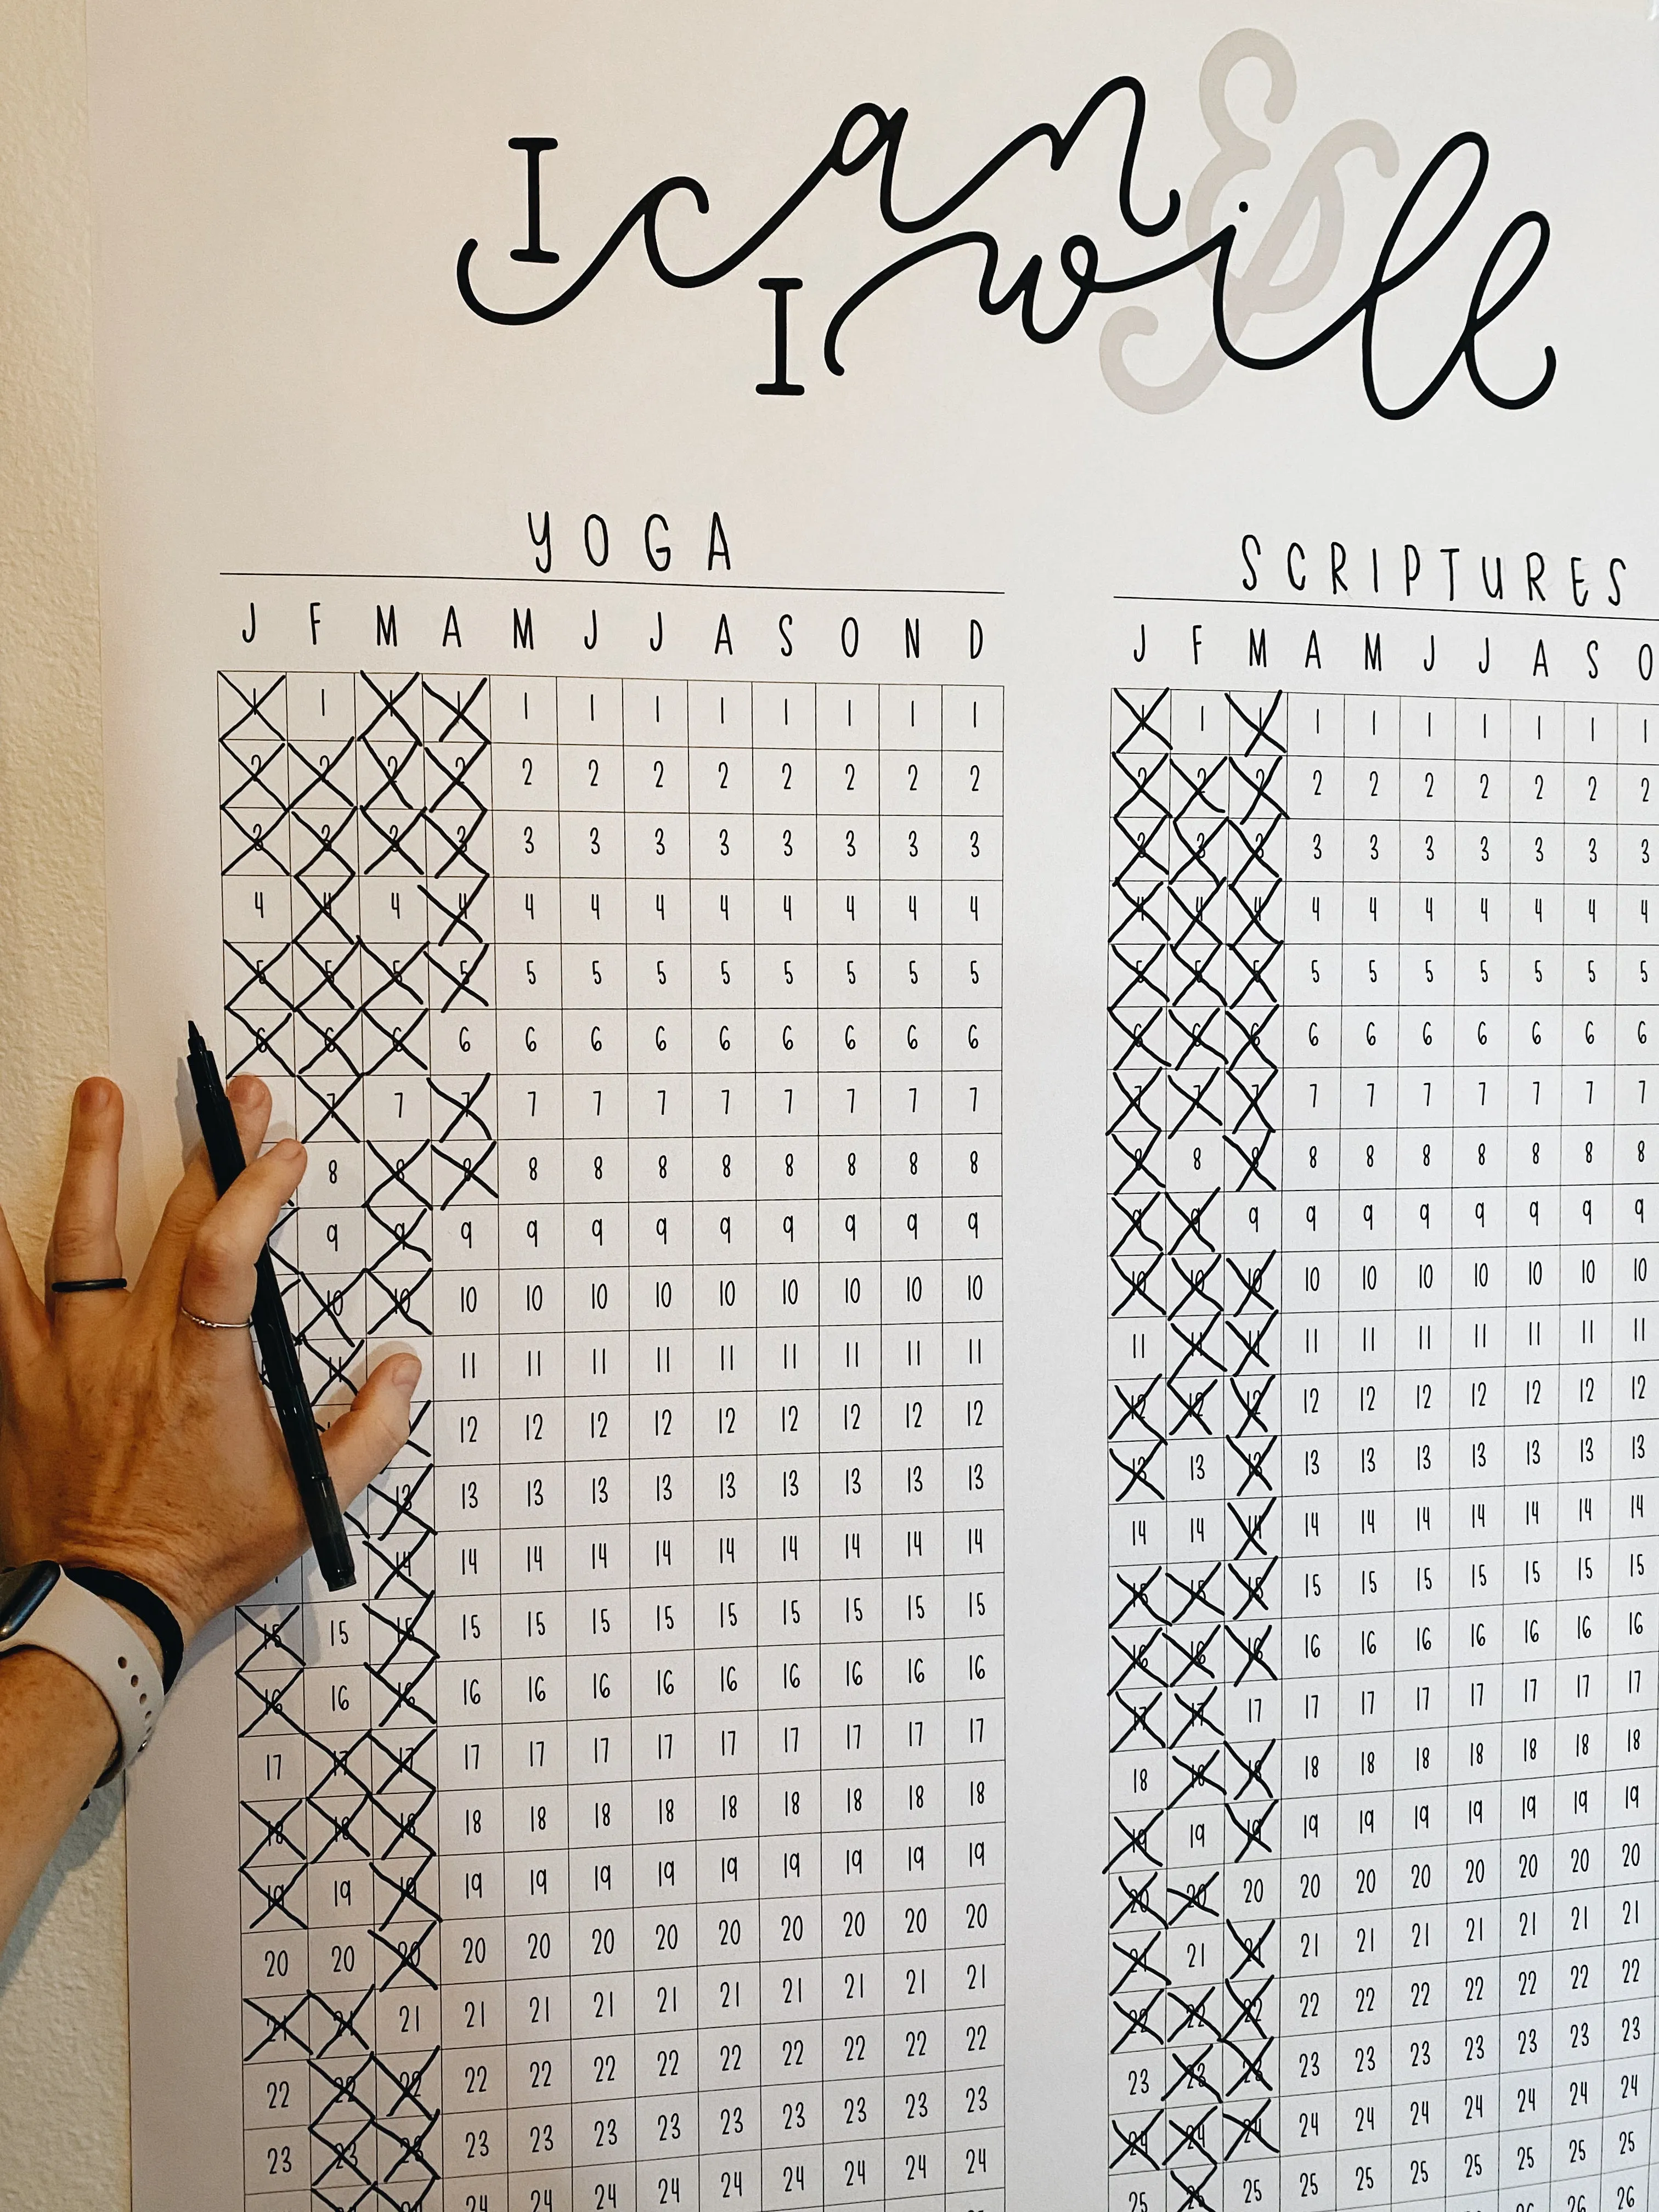 I can
&
I will
YOGA
J F M A M J J A S O N D
1 1 1 1 1 1 1 1 1 1 1 1
2 2 2 2 2 2 2 2 2 2 2 2
3 3 3 3 3 3 3 3 3 3 3 3
4 4 4 4 4 4 4 4 4 4 4 4
5 5 5 5 5 5 5 5 5 5 5 5
6 6 6 6 6 6 6 6 6 6 6 6
7 7 7 7 7 7 7 7 7 7 7
8 8 8 8 8 8 8 8 8 8 8
9 9 9 9 9 9 9 9 9 9 9
10 10 10 10 10 10 10 10 10 10 10
11 11 11 11 11 11 11 11 11 11
12 12 12 12 12 12 12 12 12
13 13 13 13 13 13 13 13 13 13
14 14 14 14 14 14 14 14 14 14
15 15 15 15 15 15 15 15 15 15 15 15
16 16 16 16 16 16 16 16 16 16 16 16
17 17 17 17 17 17 17 17 17 17 17 17
18 18 18 18 18 18 18 18 18 18 18 18
19 19 19 19 19 19 19 19 19 19 19 19
20 20 20 20 20 20 20 20 20 20 20 20
21 21 21 21 21 21 21 21 21 21 21 21
22 22 22 22 22 22 22 22 22 22 22 22
23 23 23 23 23 23 23 23 23 23 23 23
24 24 24 24 24 24 24 24 24
SCRIPTURES
J F M A M J J A S O
1 1 1 1 1 1 1 1 1 1
2 2 2 2 2 2 2 2 2 2
3 3 3 3 3 3 3 3 3 3
4 4 4 4 4 4 4 4 4 4
5 5 5 5 5 5 5 5 5 5
6 6 6 6 6 6 6 6 6 6
7 7 7 7 7 7 7 7 7 7
8 8 8 8 8 8 8 8 8 8
9 9 9 9 9 9 9 9 9 9
10 10 10 10 10 10 10 10 10 10
11 11 11 11 11 11 11 11 11 11
12 12 12 12 12 12 12 12 12 12
13 13 13 13 13 13 13 13 13 13
14 14 14 14 14 14 14 14 14 14
15 15 15 15 15 15 15 15 15 15
16 16 16 16 16 16 16 16 16 16
17 17 17 17 17 17 17 17 17 17
18 18 18 18 18 18 18 18 18 18
19 19 19 19 19 19 19 19 19 19
20 20 20 20 20 20 20 20 20 20
21 21 21 21 21 21 21 21 21 21
22 22 22 22 22 22 22 22 22 22
23 23 23 23 23 23 23 23 23 23
24 24 24 24 24 24 24 24 24 24
25 25 25 25 25 25 25 25 25 25
26 26